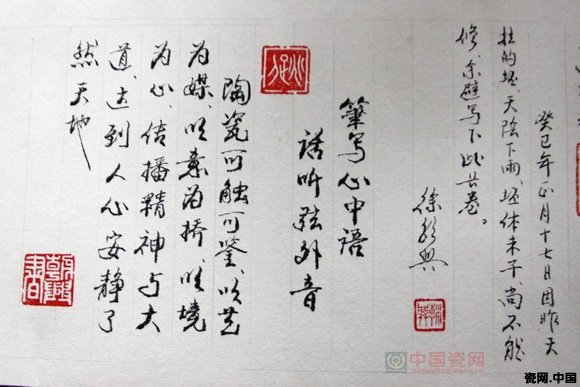 癸巳年正月十七日因昨天
拉的坯、天陰下雨、坯体未干、尚不能
修、余避写下此卷。
徐朝興
筆写心中語
话听弦外音
陶瓷可触可鉴、以艺
为媒、以素为桥、以境
为心、传播精神与大
道、达到人心安静了
然天地
中国瓷网
瓷网.中国